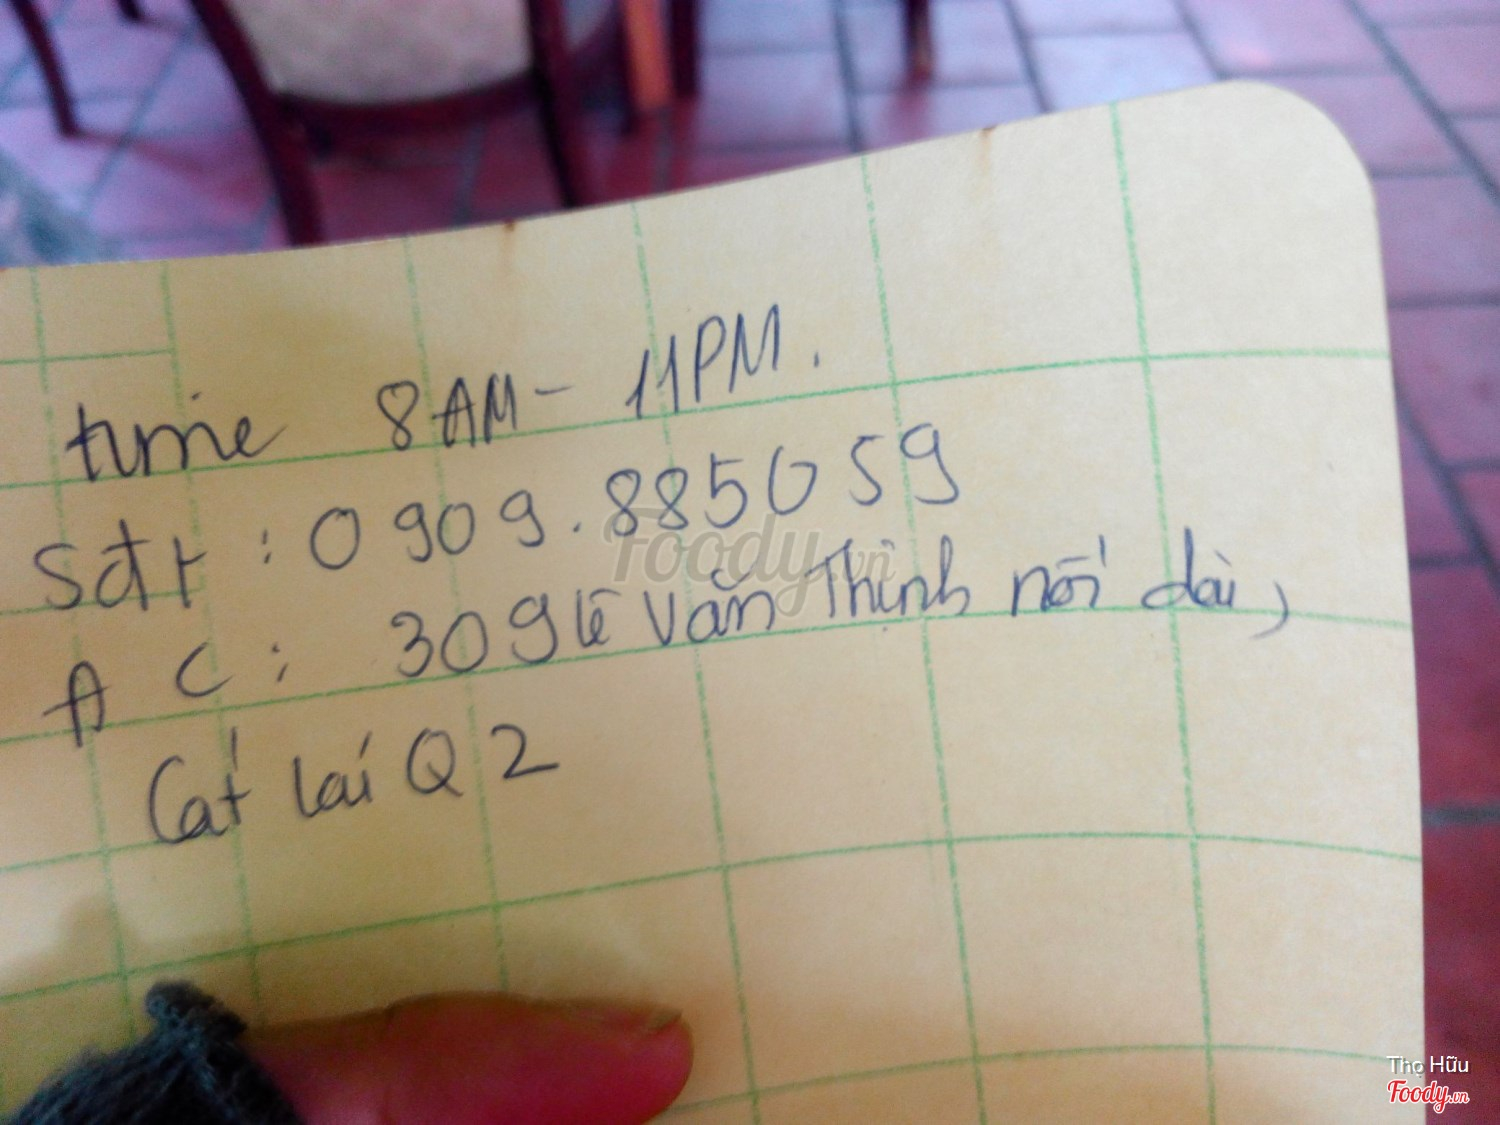 time 8AM - 11PM.
sđt : 0909.885059
Foody.vn
A C : 309 Lê Văn Thịnh nối dài,
Cát lái Q2
Thọ Hữu
Foody.vn